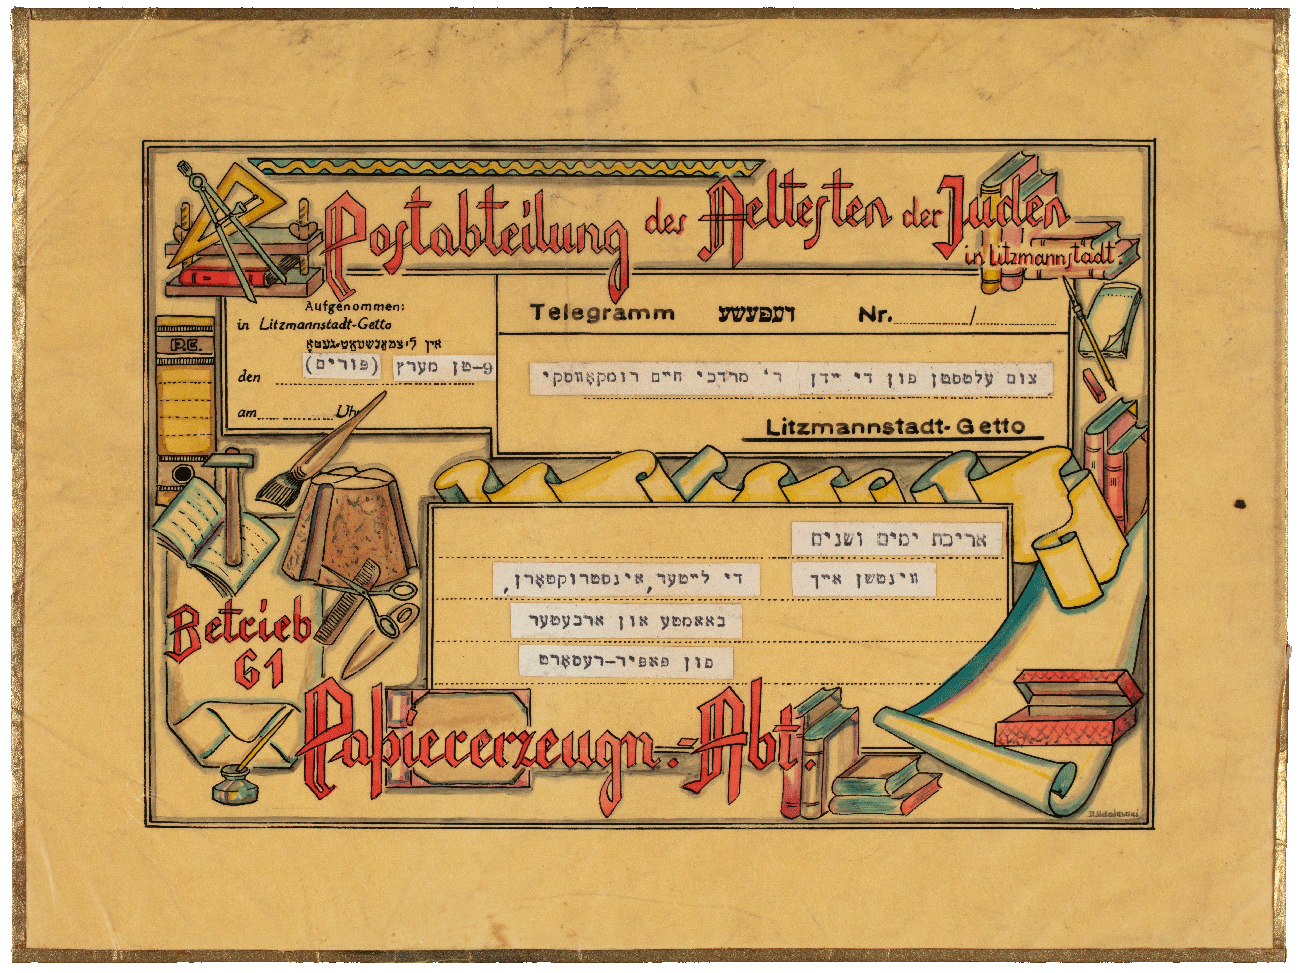 Postabteilung des Aeltesten der Juden
in Litzmannstadt.
Aufgenommen:
in Litzmannstadt-Getto
אין ליצמאנשטאט-געטא
den 9-טן מערץ (פורים)
am Uhr
Telegramm דעפעשע Nr. /
צום עלטסטן פון די יידן ר' מרדכי חיים רומקאווסקי
Litzmannstadt-Getto
P.C.
אריכת ימים ושנים
ווינטשן אייך די לייטער, אינסטרוקטארן,
באאמטע און ארבעטער
פון פאפיר-רעסארט
Betrieb
61
Papiererzeugn.-Abt.